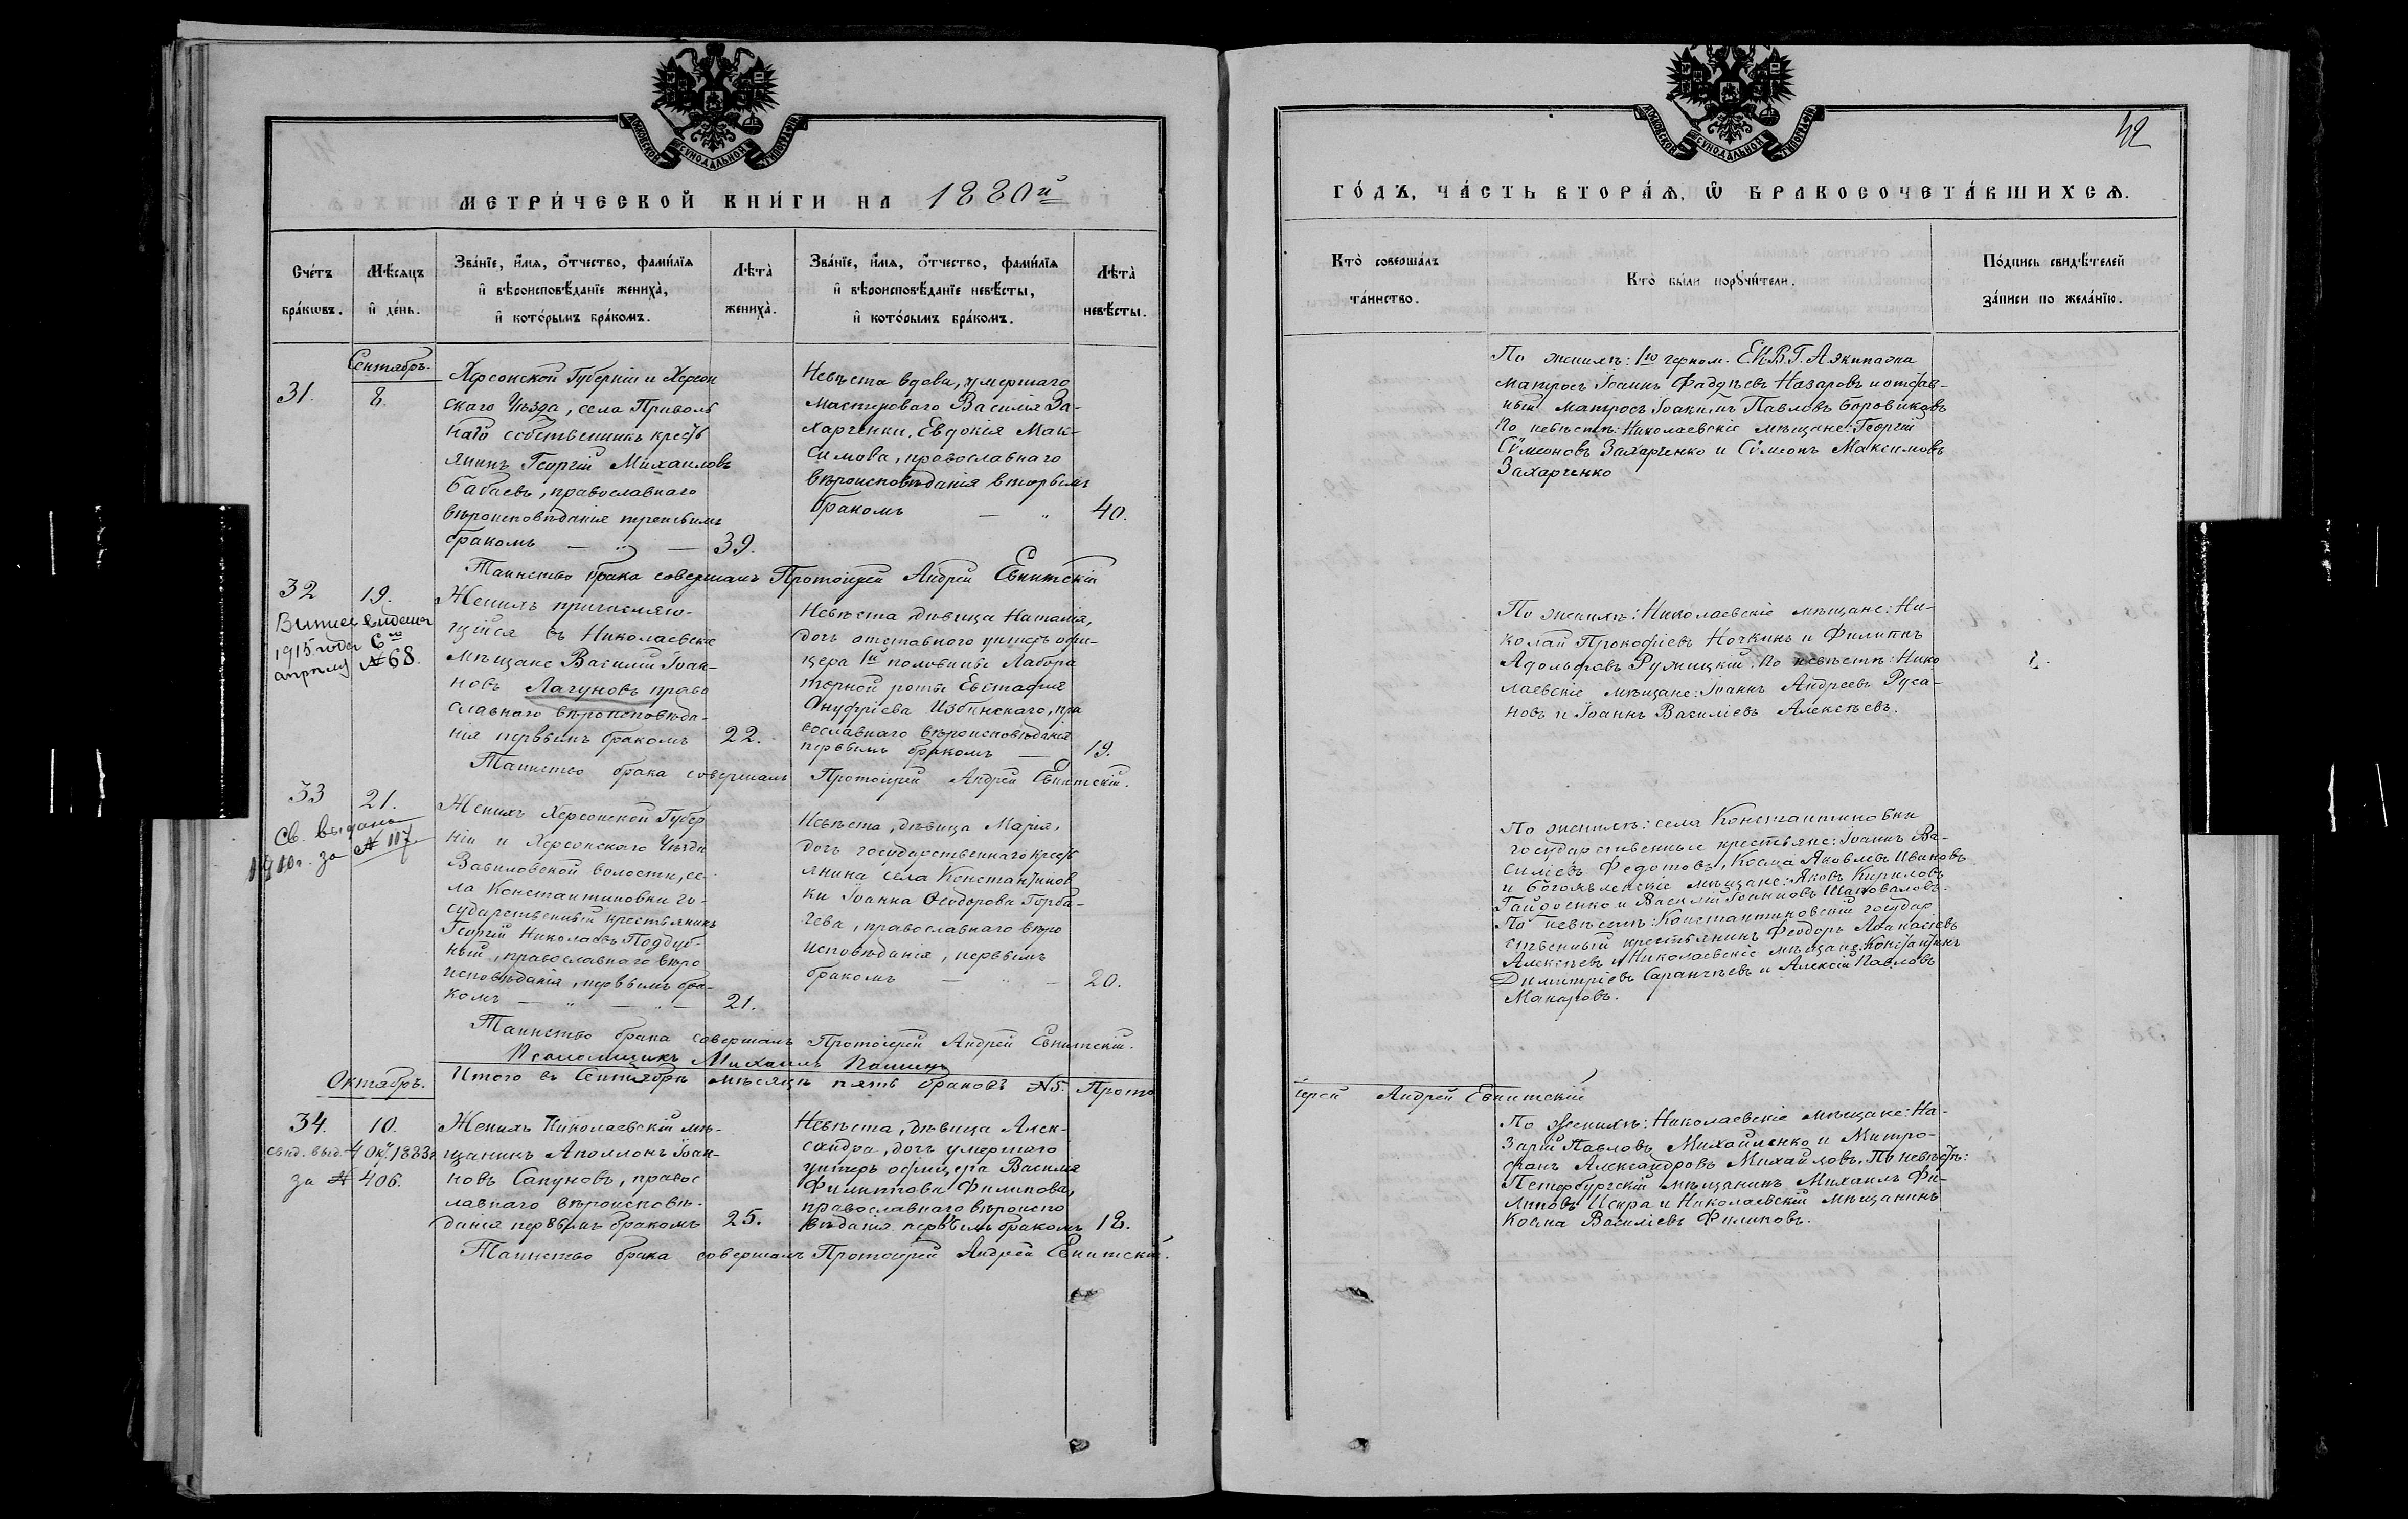 МОСКОВСКОЙ СѴНОДАЛЬНОЙ ТИПОГРАФІИ
МЕТРИ́ЧЕСКОЙ КНИ́ГИ НА 1880й
Сче́тъ бра́кѡвъ.
Мѣ́сяцъ и҆ де́нь.
Зва́нїе, и҆́мѧ, о҆́тчество, фами́лїѧ
и҆ вѣроисповѣ́данїе жениха̀,
и҆ кото́рымъ бра́комъ.
Лѣта̀ жениха̀.
Зва́нїе, и҆́мѧ, о҆́тчество, фами́лїѧ
и҆ вѣроисповѣ́данїе невѣ́сты,
и҆ кото́рымъ бра́комъ.
Лѣта̀ невѣ́сты.
Сентябрь.
31.
8.
Херсонской Губерніи и Херсон
скаго Уѣзда, села Приволь
наго собственникъ кресть
янинъ Георгій Михаиловъ
Бабаевъ, православнаго
вѣроисповѣданія третьимъ
бракомъ — „ —
39.
Невѣста вдова, умершаго
мастероваго Василія За-
харченки, Евдокія Мак-
симова, православнаго
вѣроисповѣданія вторымъ
бракомъ — „
40.
Таинство брака совершалъ Протоіерей Андрей Евнитскій
32
19.
1915 года 6го
апрѣля №68.
Женихъ причисляю-
щійся въ Николаевскіе
мѣщане Василій Іоан-
новъ Лагуновъ право
славнаго вѣроисповѣда-
нія первымъ бракомъ
22.
Невѣста дѣвица Наталія,
дочь отставного унтеръ офи-
цера 1й половины Лабора
торной роты Евстафія
Онуфріева Избинскаго, пра
вославнаго вѣроисповѣданія
первымъ бракомъ —
19.
Таинство брака совершалъ Протоіерей Андрей Евнитскій.
33
21.
Св. выдано
1910г. за № 117.
Женихъ Херсонской Губер
ніи и Херсонскаго Уѣзда
Вавиловской волости, се-
ла Константиновки го-
сударственный крестьянинъ
Георгій Николаевъ Поддуб-
ный, православнаго вѣро
исповѣданія, первымъ бра-
комъ — „ — „ —
21.
Невѣста, дѣвица Марія,
дочь государственнаго кресть
янина села Константинов
ки Іоанна Ѳеодорова Горба-
чева, православнаго вѣро
исповѣданія, первымъ
бракомъ — „ —
20.
Таинство брака совершалъ Протоіерей Андрей Евнитскій.
Псаломщикъ Михаилъ Пашинъ
Итого въ Сентябрѣ мѣсяцѣ пять браковъ №5. Прото
Октябрь.
34.
10.
свид. выд. 4 Окт. 1883г
за № 406.
Женихъ Николаевскій мѣ-
щанинъ Аполлонъ Іоан-
новъ Сапуновъ, правос
лавнаго вѣроисповѣ-
данія первымъ бракомъ
25.
Невѣста, дѣвица Алек-
сандра, дочь умершаго
унтеръ офицера Василія
Филиппова Филипова,
православнаго вѣроиспо
вѣданія первымъ бракомъ
18.
Таинство брака совершалъ Протоіерей Андрей Евнитскій.
МОСКОВСКОЙ СѴНОДАЛЬНОЙ ТИПОГРАФІИ
42
ГО́ДЪ, ЧА́СТЬ ВТОРА́Ѧ, Ѽ БРАКОСОЧЕТА́ВШИХСѦ.
Кто̀ соверша́лъ
та́инство.
Кто̀ бы́ли порꙋчи́тели.
По́дпись свидѣ́телей
за́писи по жела́нїю.
По женихѣ: 1го черном. Е.К.В.Г.А. экипажа
матросъ Іоаннъ Фаддѣевъ Назаровъ и отстав-
ный матросъ Іоакимъ Павловъ Боровиковъ
По невѣстѣ: Николаевскіе мѣщане: Георгій
Сѵмеоновъ Захарченко и Сѵмеонъ Максимовъ
Захарченко
По женихѣ: Николаевскіе мѣщане: Ни-
колай Прокофіевъ Ночкинъ и Филиппъ
Адольфовъ Ружицкій. По невѣстѣ: Нико
лаевскіе мѣщане: Іоаннъ Андреевъ Руса-
новъ и Іоаннъ Василіевъ Алексѣевъ.
По женихѣ: села Константиновки
государственные крестьяне: Іоаннъ Ва-
силіевъ Федотовъ, Косма Яковлевъ Ивановъ
и Богоявленскіе мѣщане: Яковъ Кириловъ
Гайдоенко и Василій Іоанновъ Шаповаловъ.
По невѣстѣ: Константиновскій государ
ственный крестьянинъ Феодоръ Аѳанасіевъ
Алексѣевъ и Николаевскіе мѣщане: Константинъ
Димитріевъ Саранчѣевъ и Алексій Павловъ
Макаровъ.
іерей Андрей Евнитскій
По женихѣ: Николаевскіе мѣщане: На-
зарій Павловъ Михайленко и Митро-
фанъ Александровъ Михайловъ. По невѣстѣ:
Петербургскій мѣщанинъ Михаилъ Фи-
липовъ Искра и Николаевскій мѣщанинъ
Косма Василіевъ Филиповъ.